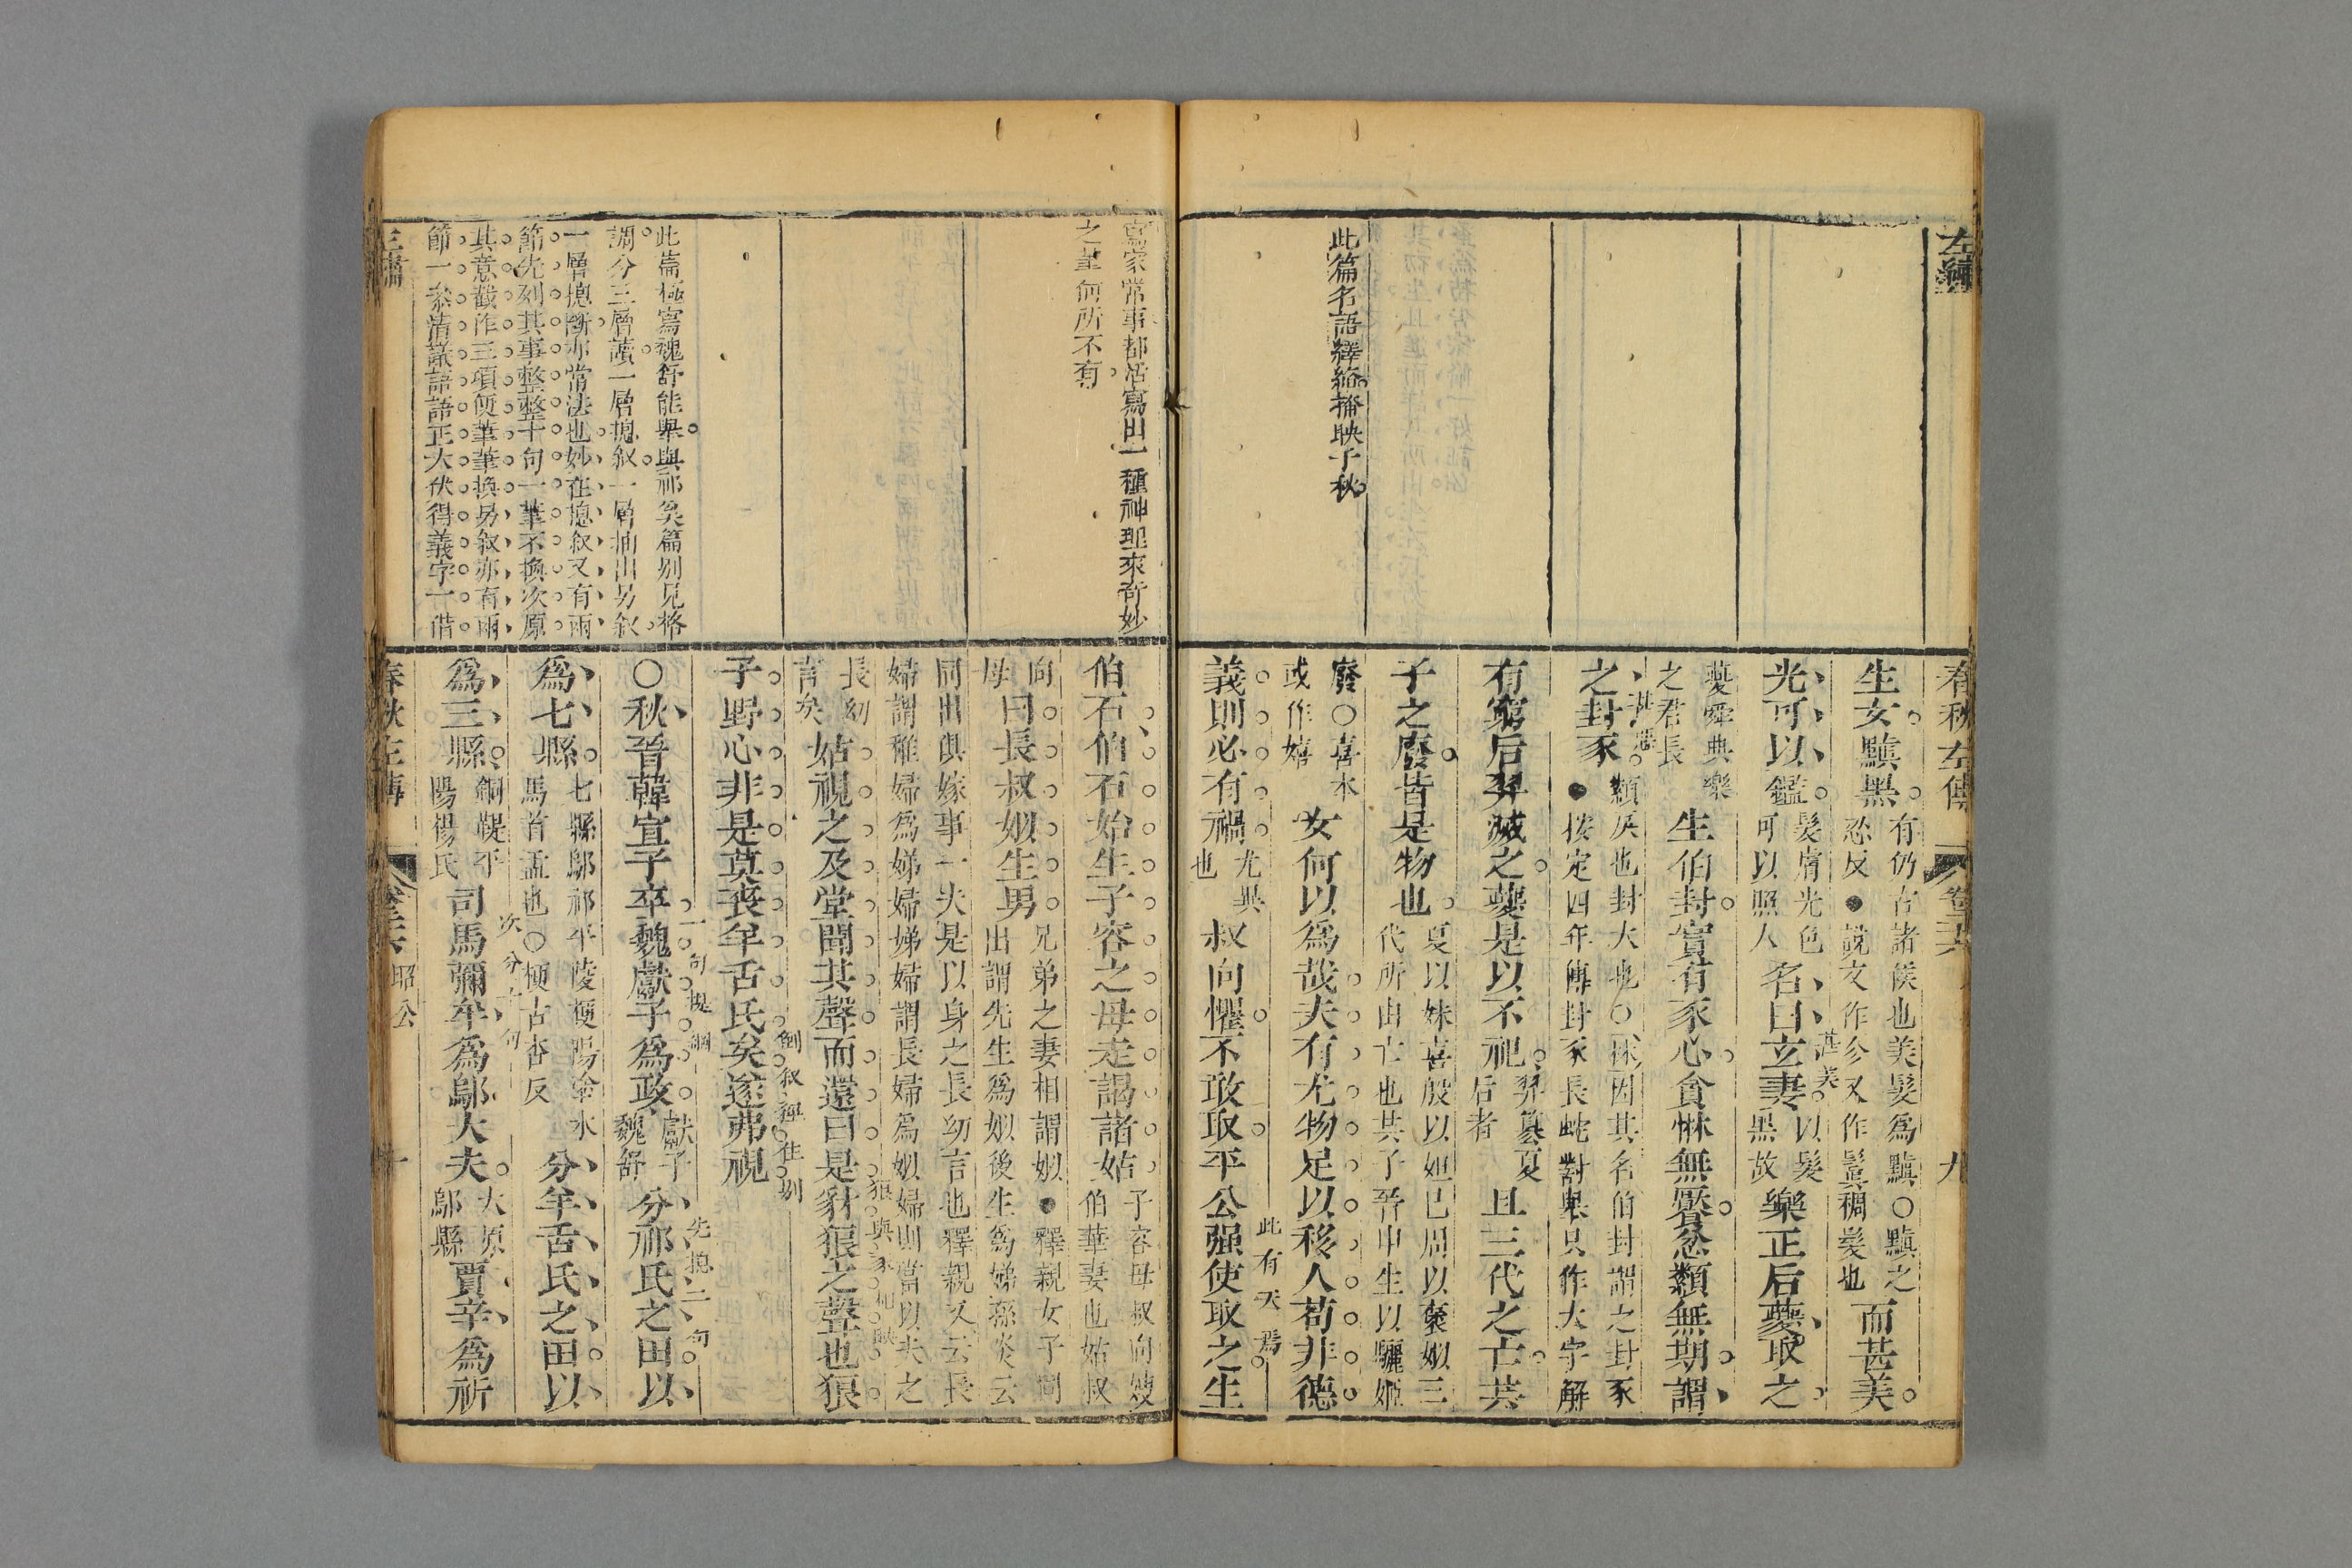 左繡
此篇名語繹絡掩映千秋
春秋左傳
卷二十六
九
生女黰黑有仍古諸侯也美髮爲黰○黰之忍反●說文作㐱又作鬒稠髮也而甚美
光可以鑑髮膚光色可以照人名曰玄妻以髮黑故樂正后夔取之
甚美
夔舜典樂之君長生伯封實有豕心貪惏無饜忿纇無期謂
之封豕纇戾也封大也○林因其名伯封謂之封豕●按定四年傳封豕長蛇對舉只作大字解
甚惡
有窮后羿滅之夔是以不祀羿簒夏后者且三代之亡共
子之廢皆是物也夏以妹喜殷以妲己周以褒姒三代所由亡也其子晉申生以驪姬
廢○喜本或作嬉女何以爲哉夫有尤物足以移人苟非德
義則必有禍尤異也叔向懼不敢取平公强使取之生
此有天焉
寫家常事都活寫出一種神理來奇妙
之筆何所不有
此篇極寫魏舒能舉與祁奚篇別見格
調分三層讀一層摠叙一層抽出另叙
一層摠斷亦常法也妙在摠叙又有兩
節先列其事整整十句一筆不換次原
其意截作三項便筆筆換另叙亦有兩
節一叅清議語語正大伏得義字一借
伯石伯石始生子容之母走謁諸姑子容母叔向嫂伯華妻也姑叔
向母曰長叔姒生男兄弟之妻相謂姒●釋親女子同出謂先生爲姒後生爲娣孫炎云
同出俱嫁事一夫是以身之長幼言也釋親又云長婦謂稚婦爲娣婦娣婦謂長婦爲姒婦則當以夫之
長幼言矣姑視之及堂聞其聲而還曰是豺狼之聲也狼
狼與豕相映
子野心非是莫喪羊舌氏矣遂弗視
倒叙逕住別
○秋晉韓宣子卒魏獻子爲政獻子魏舒分祁氏之田以
一句提綱
先摠二句
爲七縣七縣鄔祁平陵梗陽塗水馬首盂也○梗古杏反分羊舌氏之田以
爲三縣銅鞮平陽楊氏司馬彌牟爲鄔大夫大原鄔縣賈辛爲祈
次分十句
春秋左傳
卷二十六
昭公
十